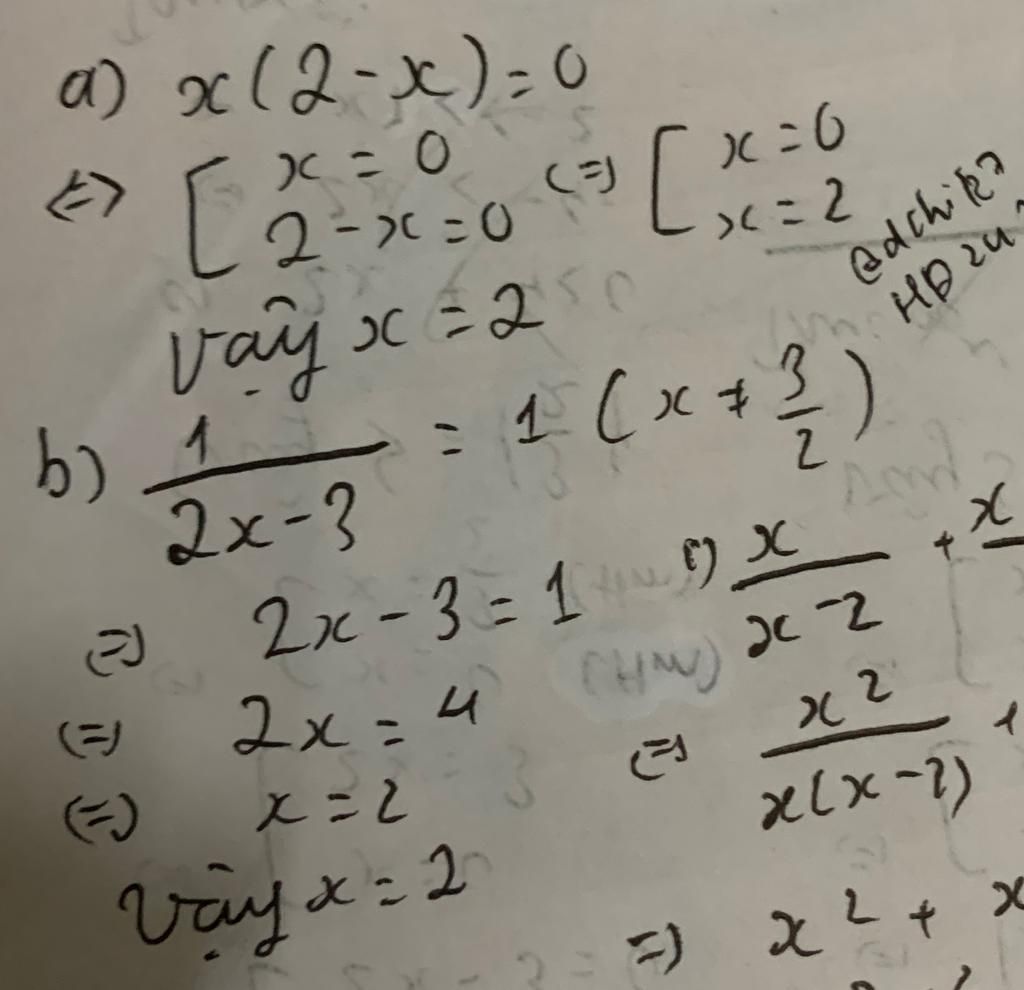 a) x(2-x)=0
<=> [ x=0 <=> [ x=0
2-x=0 x=2
@dchi
HĐ
Vậy x=2
b) 1/(2x-3) = 1 (x≠3/2)
=> 2x-3=1
<=> 2x=4
<=> x=2
Vậy x=2
c) x/(x-2) + x
<=> x²/(x(x-2)) +
=> x² + x